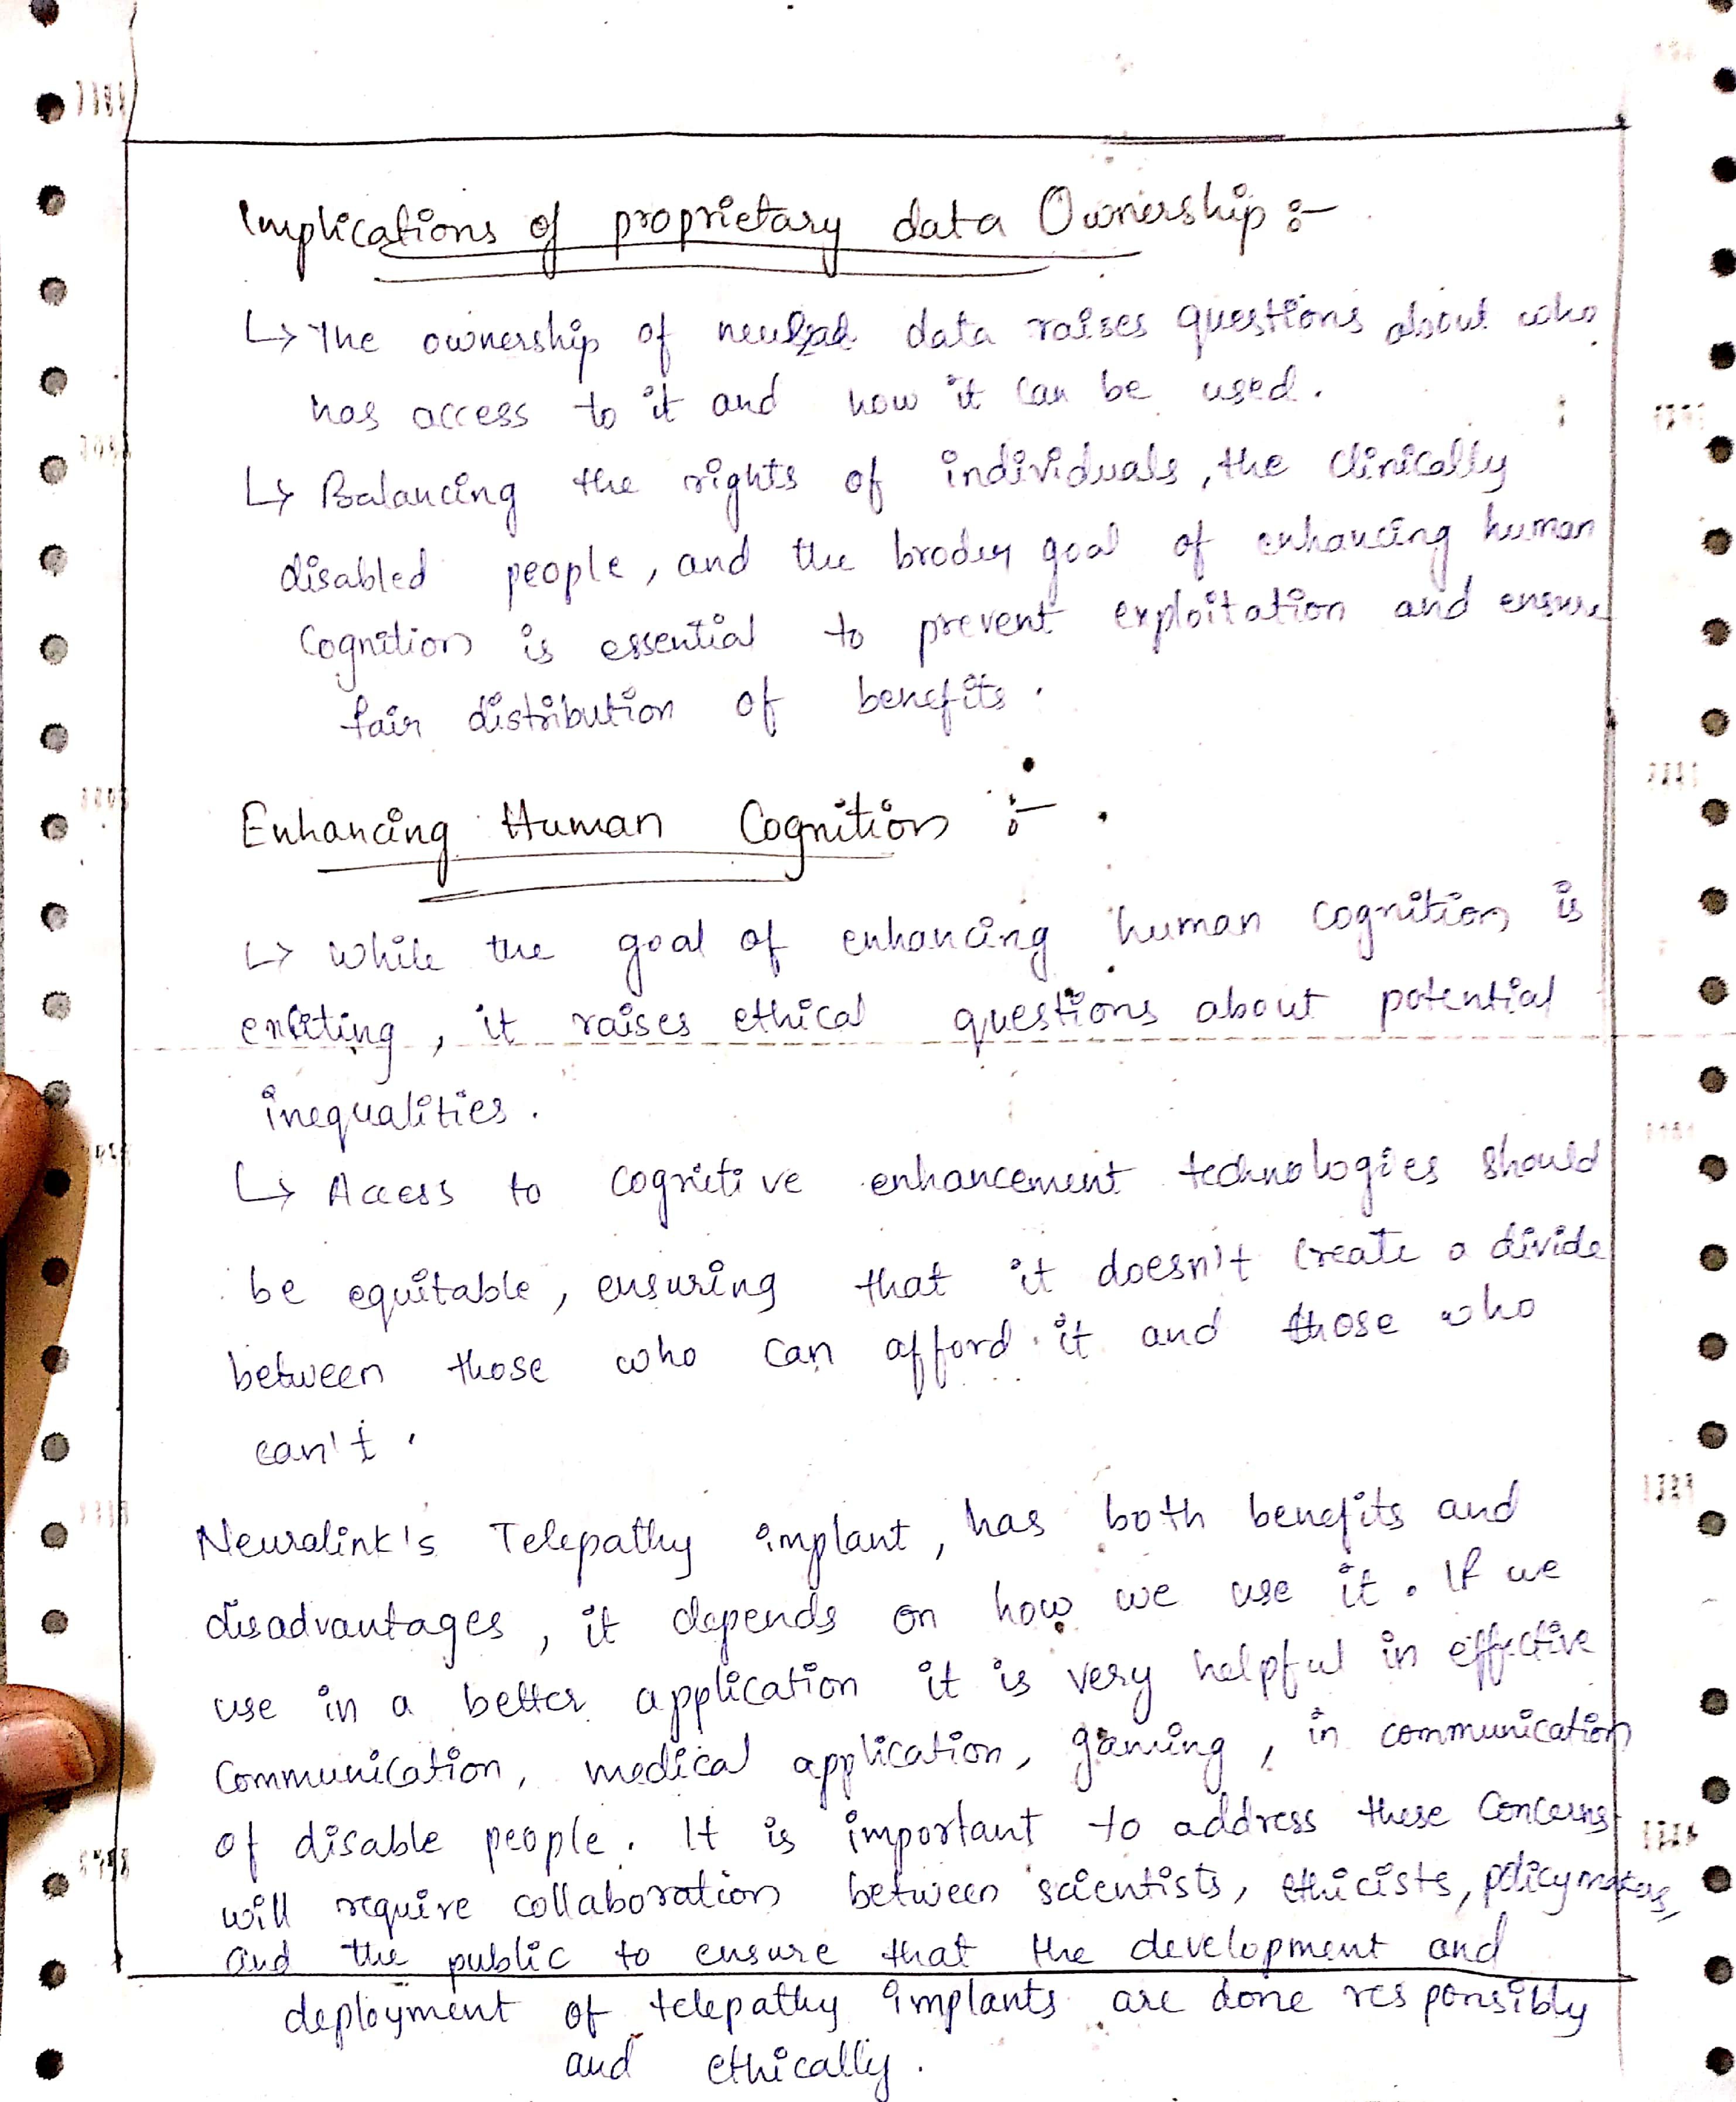 Implications of proprietary data Ownership :-
↳ The ownership of neural data raises questions about who
has access to it and how it can be used.
↳ Balancing the rights of individuals, the clinically
disabled people, and the broder goal of enhancing human
Cognition is essential to prevent exploitation and ensure
fair distribution of benefits.
Enhancing Human Cognition :-
↳ While the goal of enhancing human cognition is
exciting, it raises ethical questions about potential
inequalities.
↳ Access to cognitive enhancement technologies should
be equitable, ensuring that it doesn't create a divide
between those who can afford it and those who
can't.
Neuralink's Telepathy implant, has both benefits and
disadvantages, it depends on how we use it. If we
use in a better application it is very helpful in effective
Communication, medical application, gaming, in communication
of disable people. It is important to address these Concerns
will require collaboration between scientists, ethicists, policymakers,
and the public to ensure that the development and
deployment of telepathy implants are done responsibly
and ethically.